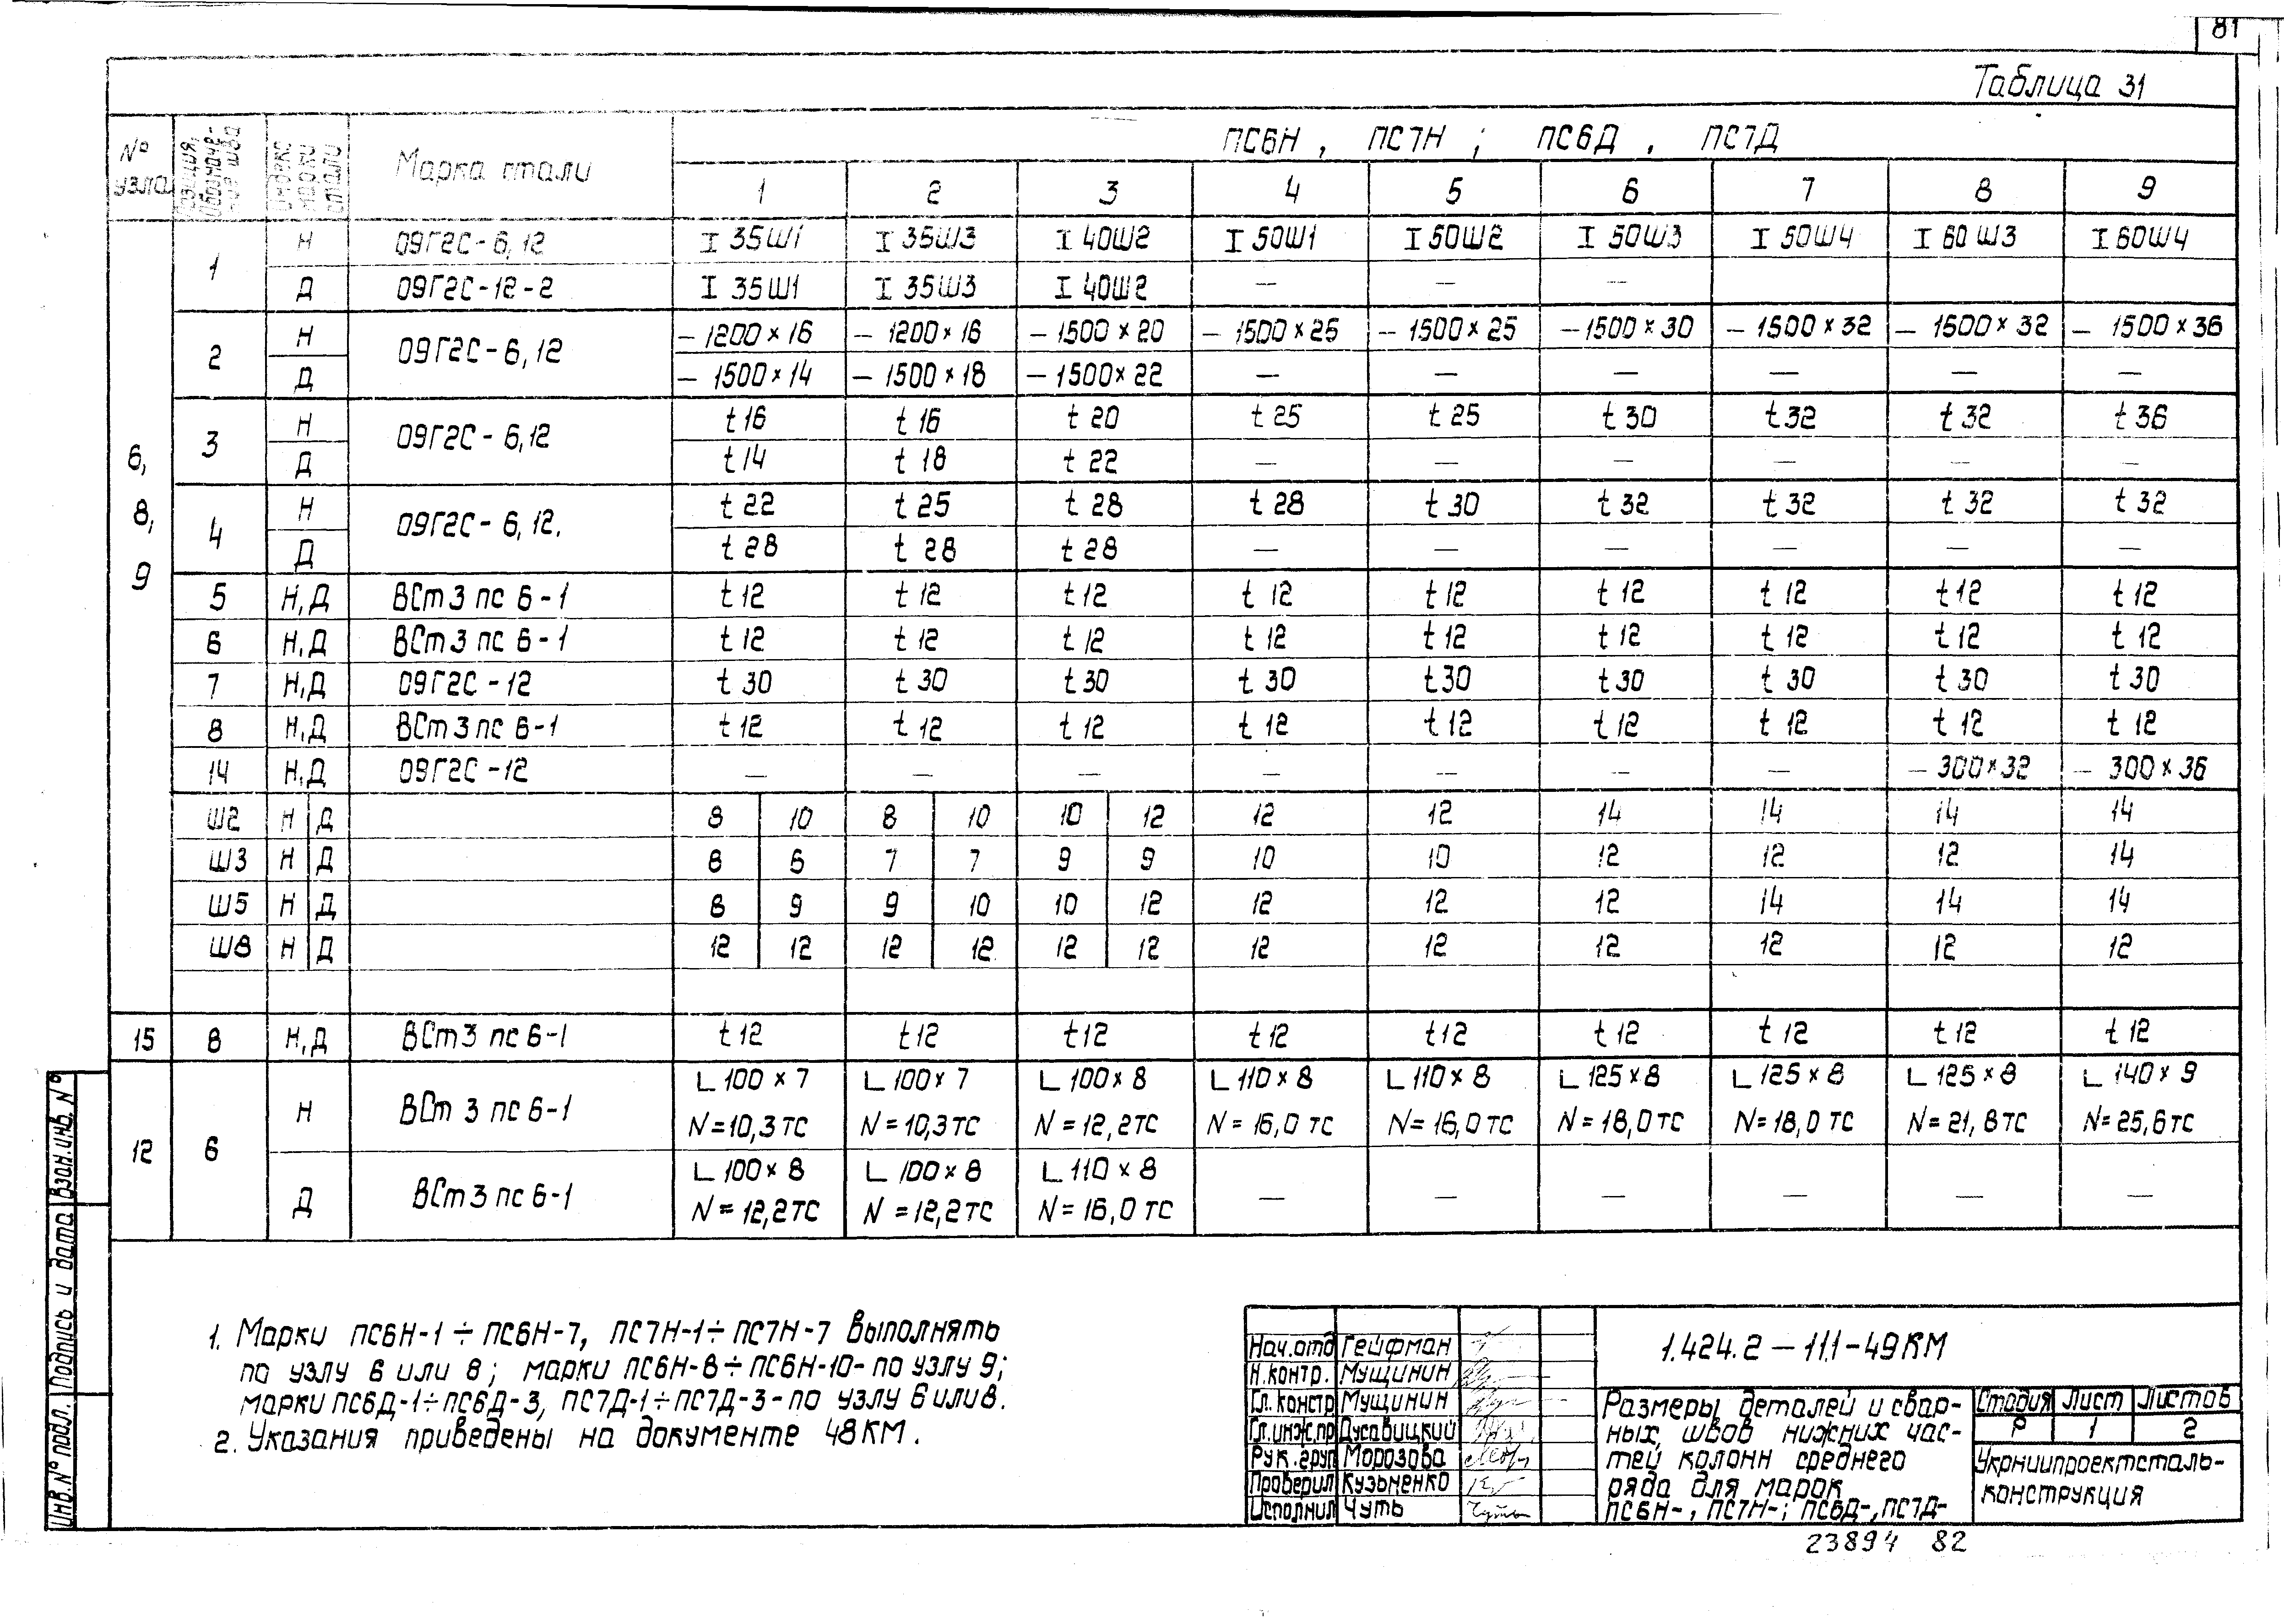 81
Таблица 31
№ узла | Позиция, обозначение шва | Индекс марки стали | Марка стали | ПС6Н, ПС7Н; ПС6Д, ПС7Д
1 2 3 4 5 6 7 8 9
6, 8, 9
1 Н 09Г2С-6,12 I 35Ш1 I 35Ш3 I 40Ш2 I 50Ш1 I 50Ш2 I 50Ш3 I 50Ш4 I 60Ш3 I 60Ш4
Д 09Г2С-12-2 I 35Ш1 I 35Ш3 I 40Ш2 — — —
2 Н 09Г2С-6,12 — 1200×16 — 1200×16 — 1500×20 — 1500×25 — 1500×25 — 1500×30 — 1500×32 — 1500×32 — 1500×36
Д — 1500×14 — 1500×18 — 1500×22 — — — — — —
3 Н 09Г2С-6,12 t16 t16 t20 t25 t25 t30 t32 t32 t36
Д t14 t18 t22 — — — — — —
4 Н 09Г2С-6,12. t22 t25 t28 t28 t30 t32 t32 t32 t32
Д t28 t28 t28 — — — — — —
5 Н,Д ВСт3 пс 6-1 t12 t12 t12 t12 t12 t12 t12 t12 t12
6 Н,Д ВСт3 пс 6-1 t12 t12 t12 t12 t12 t12 t12 t12 t12
7 Н,Д 09Г2С-12 t30 t30 t30 t30 t30 t30 t30 t30 t30
8 Н,Д ВСт3 пс 6-1 t12 t12 t12 t12 t12 t12 t12 t12 t12
14 Н,Д 09Г2С-12 — — — — — — — — 300×32 — 300×36
Ш2 Н Д 8 10 8 10 10 12 12 12 14 14 14 14
Ш3 Н Д 8 6 7 7 9 9 10 10 12 12 12 14
Ш5 Н Д 8 9 9 10 10 12 12 12 12 14 14 14
Ш8 Н Д 12 12 12 12 12 12 12 12 12 12 12 12
15 8 Н,Д ВСт3 пс 6-1 t12 t12 t12 t12 t12 t12 t12 t12 t12
12 6 Н ВСт 3 пс 6-1 L 100×7 L 100×7 L 100×8 L 110×8 L 110×8 L 125×8 L 125×8 L 125×8 L 140×9
N=10,3тс N=10,3тс N=12,2тс N=16,0тс N=16,0тс N=18,0тс N=18,0тс N=21,8тс N=25,6тс
Д ВСт3 пс 6-1 L 100×8 L 100×8 L 110×8 — — — — — —
N=12,2тс N=12,2тс N=16,0тс
1. Марки ПС6Н-1÷ПС6Н-7, ПС7Н-1÷ПС7Н-7 выполнять
по узлу 6 или 8; марки ПС6Н-8÷ПС6Н-10-по узлу 9;
марки ПС6Д-1÷ПС6Д-3, ПС7Д-1÷ПС7Д-3-по узлу 6 или 8.
2. Указания приведены на документе 48КМ.
Нач.отд Гейфман
Н.контр. Мущинин
Гл.констр Мущинин
Гл.инж.пр Дусавицкий
Рук.груп Морозова
Проверил Кузьменко
Исполнил Чуть
1.424.2-11.1-49КМ
Размеры деталей и свар-
ных швов нижних час-
тей колонн среднего
ряда для марок
ПС6Н-, ПС7Н-; ПС6Д-, ПС7Д-
Стадия Лист Листов
Р 1 2
Укрниипроектсталь-
конструкция
23894 82
Инв.№ подл. Подпись и дата Взам.инв.№